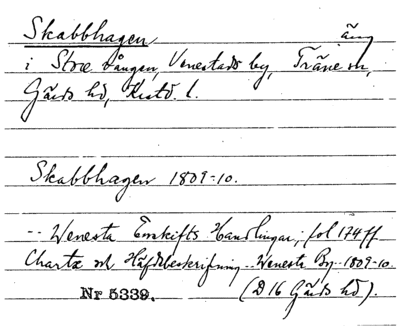 Skabbhagen äng
i Stora vången, Venestads by, Träne sn,
Gärds hd, Krstd. l.
Skabbhagen 1809-10.
-- Wenesta Enskifts Handlingar; fol 174 ff
Charta och Häfdebeskrifning .. Wenesta By.. 1809-10.
Nr 5339. (D 16 Gärds hd).